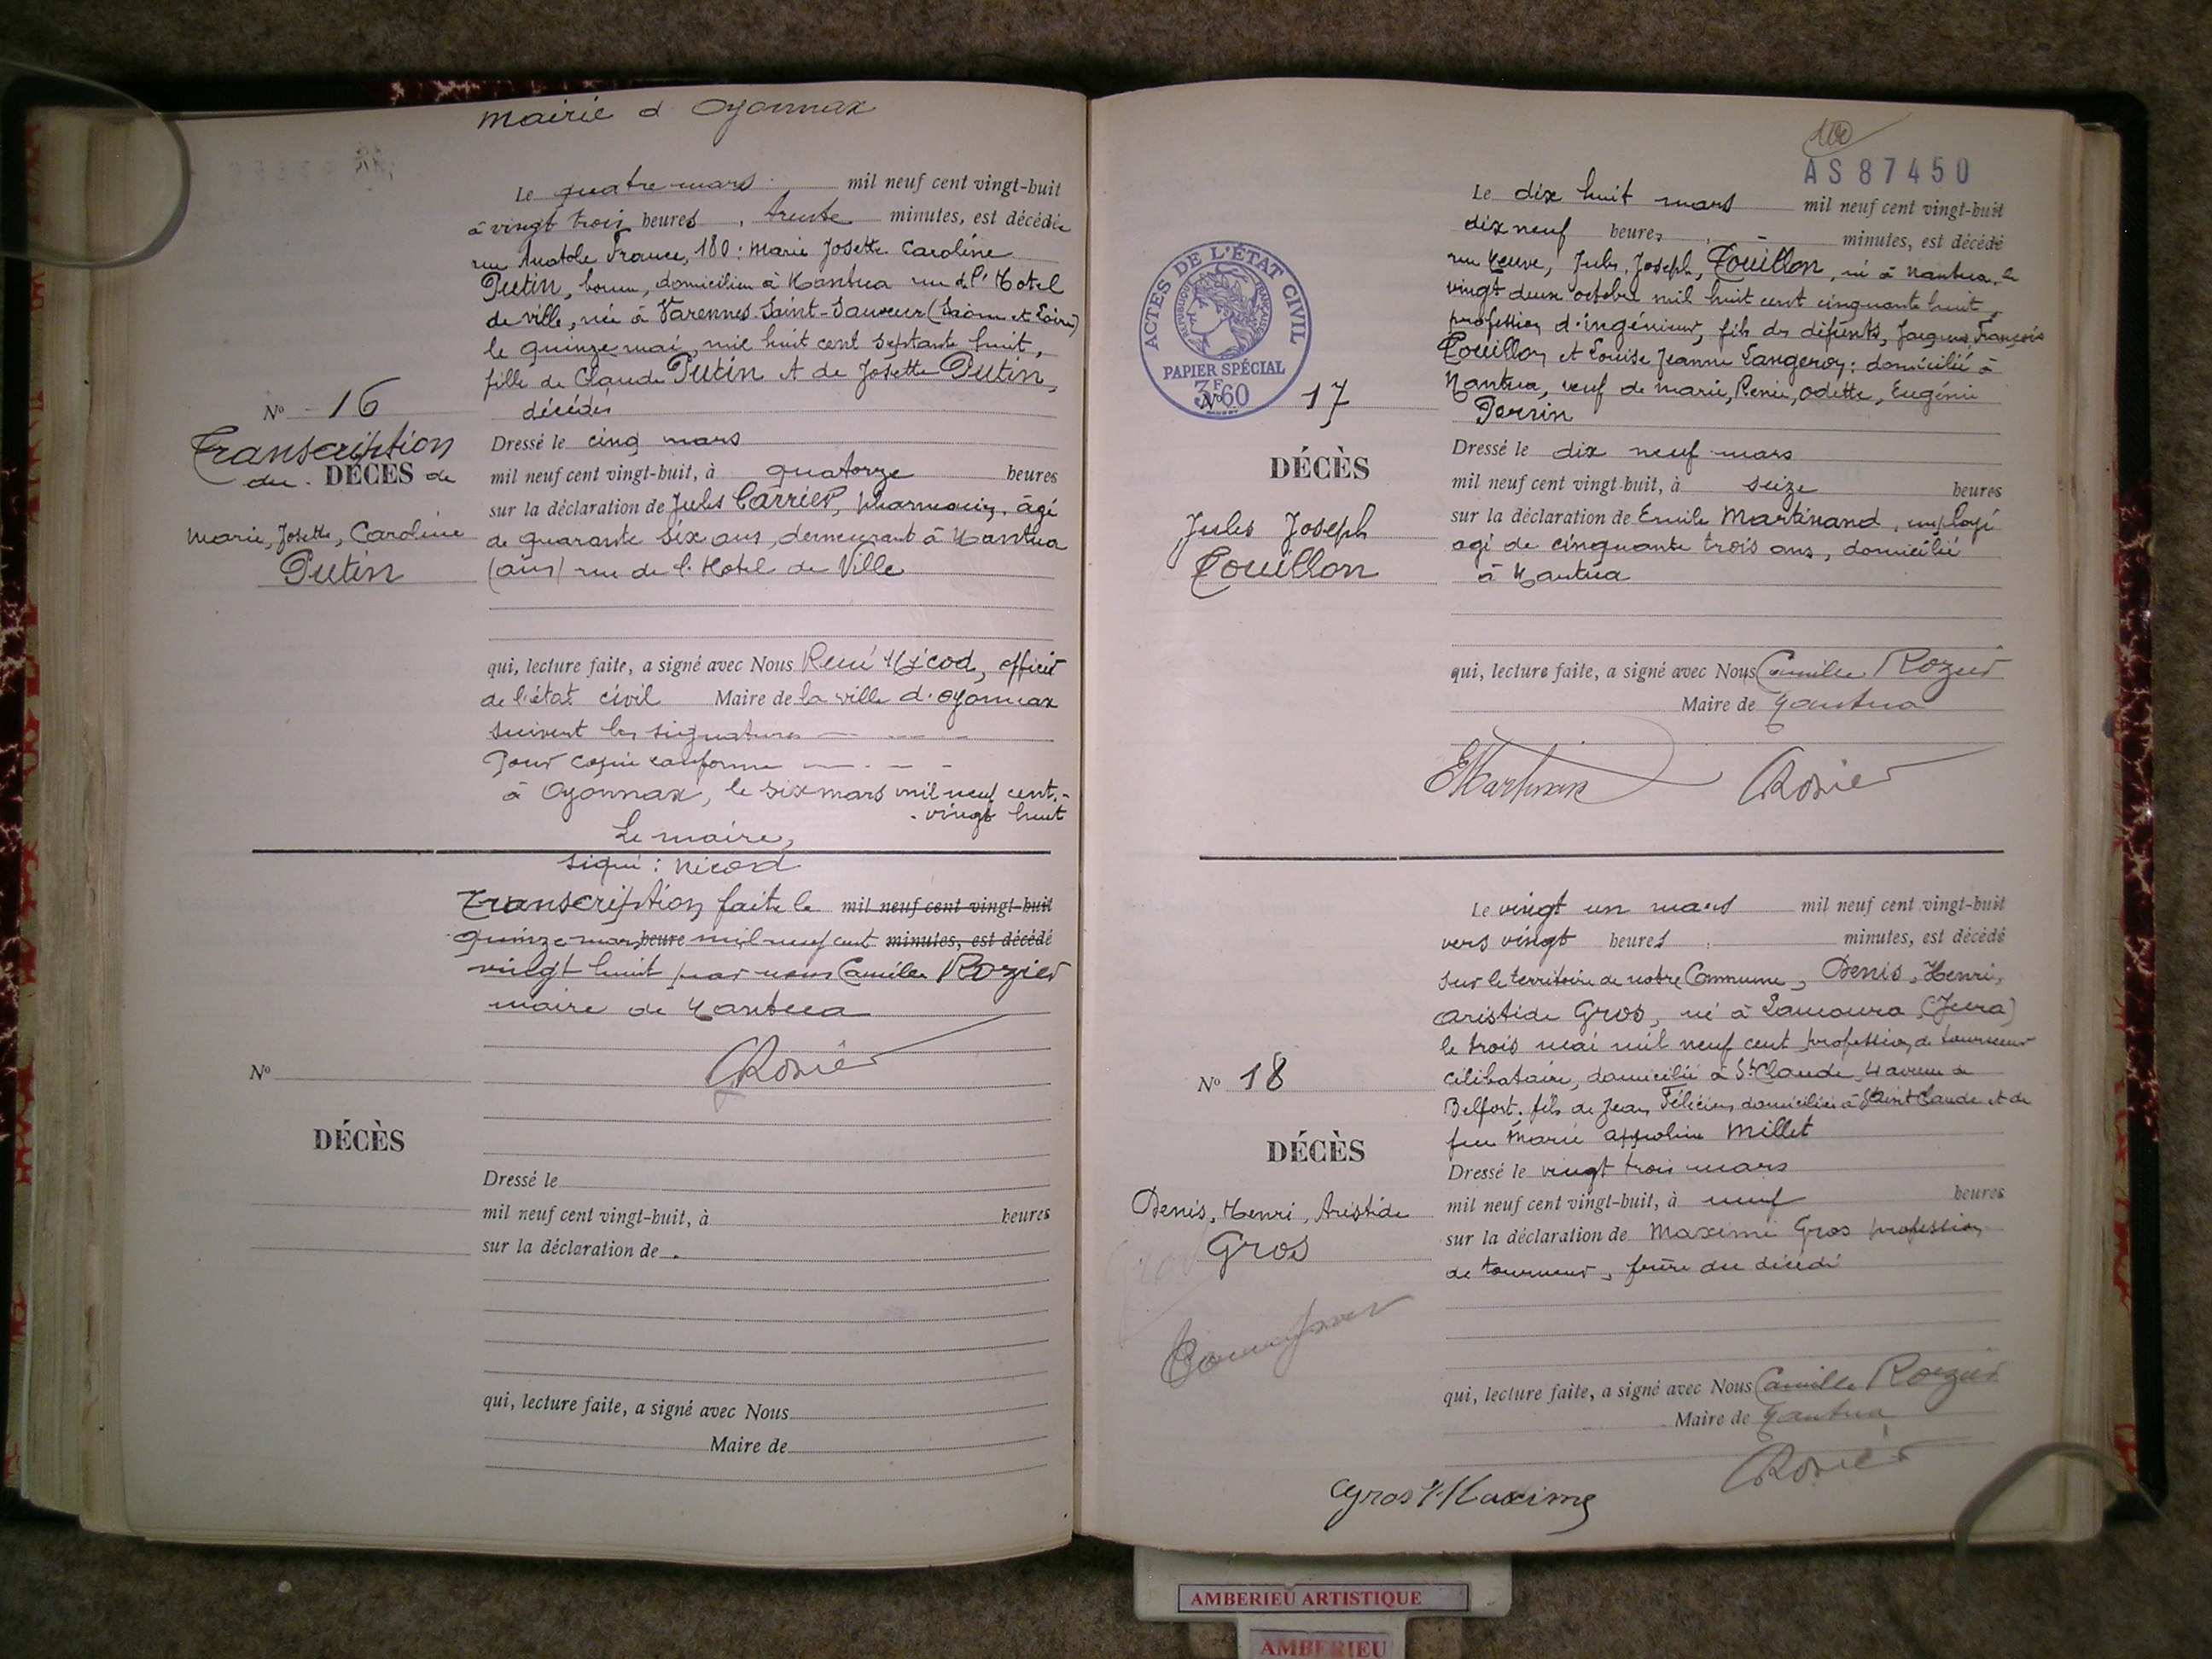 mairie d Oyonnax
Le quatre mars mil neuf cent vingt-huit
à vingt trois heures, trente minutes, est décédée
rue Anatole France, 180 : Marie Josette Caroline
Putin, bonne, domiciliée à Nantua rue de l'Hotel
de ville, née à Varennes Saint-Sauveur (Saône et Loire)
le quinze mai mil huit cent septante huit,
fille de Claude Putin et de Josette Putin,
décédés
No 16
Transcription
du DÉCÈS de
Marie, Josette, Caroline
Putin
Dressé le cinq mars
mil neuf cent vingt-huit, à quatorze heures
sur la déclaration de Jules Carrier, pharmacien, âgé
de quarante six ans, demeurant à Nantua
(ain) rue de l'Hotel de Ville
qui, lecture faite, a signé avec Nous René Nicod, officier
de l'état civil Maire de la ville d'oyonnax
suivent les signatures
Pour copie conforme
à Oyonnax, le six mars mil neuf cent
vingt huit
Le maire,
signé : Nicod
Transcription faite le mil neuf cent vingt-huit
quinze mars heure mil neuf cent minutes, est décédé
vingt huit par nous Camille Rozier
maire de Nantua
CRosier
No
DÉCÈS
Dressé le
mil neuf cent vingt-huit, à heures
sur la déclaration de
qui, lecture faite, a signé avec Nous
Maire de
100
AS 87450
Le dix huit mars mil neuf cent vingt-huit
dix neuf heures, - minutes, est décédé
rue Neuve, Jules, Joseph, Touillon, né à Nantua, le
vingt deux octobre mil huit cent cinquante huit,
profession d'ingénieur, fils des défunts, Jacques, François
Touillon et Louise Jeanne Langeron : domicilié à
Nantua, veuf de Marie, Renée, Odette, Eugénie
Perrin
ACTES DE L'ÉTAT CIVIL
RÉPUBLIQUE FRANÇAISE
PAPIER SPÉCIAL
3F60
No 17
DÉCÈS
Jules Joseph
Touillon
Dressé le dix neuf mars
mil neuf cent vingt-huit, à seize heures
sur la déclaration de Emile Martinand, employé
agé de cinquante trois ans, domicilié
à Nantua
qui, lecture faite, a signé avec Nous Camille Rozier
Maire de Nantua
EMartinand CRosier
Le vingt un mars mil neuf cent vingt-huit
vers vingt heures, minutes, est décédé
sur le territoire de notre Commune, Denis, Henri,
aristide Gros, né à Lamoura (Jura)
le trois mai mil neuf cent profession de tourneur
célibataire, domicilié à St Claude, 4 avenue de
Belfort. fils de Jean Félicien domicilié à Saint Claude et de
feue Marie appoline Millet
No 18
DÉCÈS
Denis, Henri, Aristide
Gros
Dressé le vingt trois mars
mil neuf cent vingt-huit, à neuf heures
sur la déclaration de Maxime Gros profession
de tourneur, frère du décédé
qui, lecture faite, a signé avec Nous Camille Rozier
Maire de Nantua
CRosier
Gros Maxime
AMBERIEU ARTISTIQUE
AMBERIEU